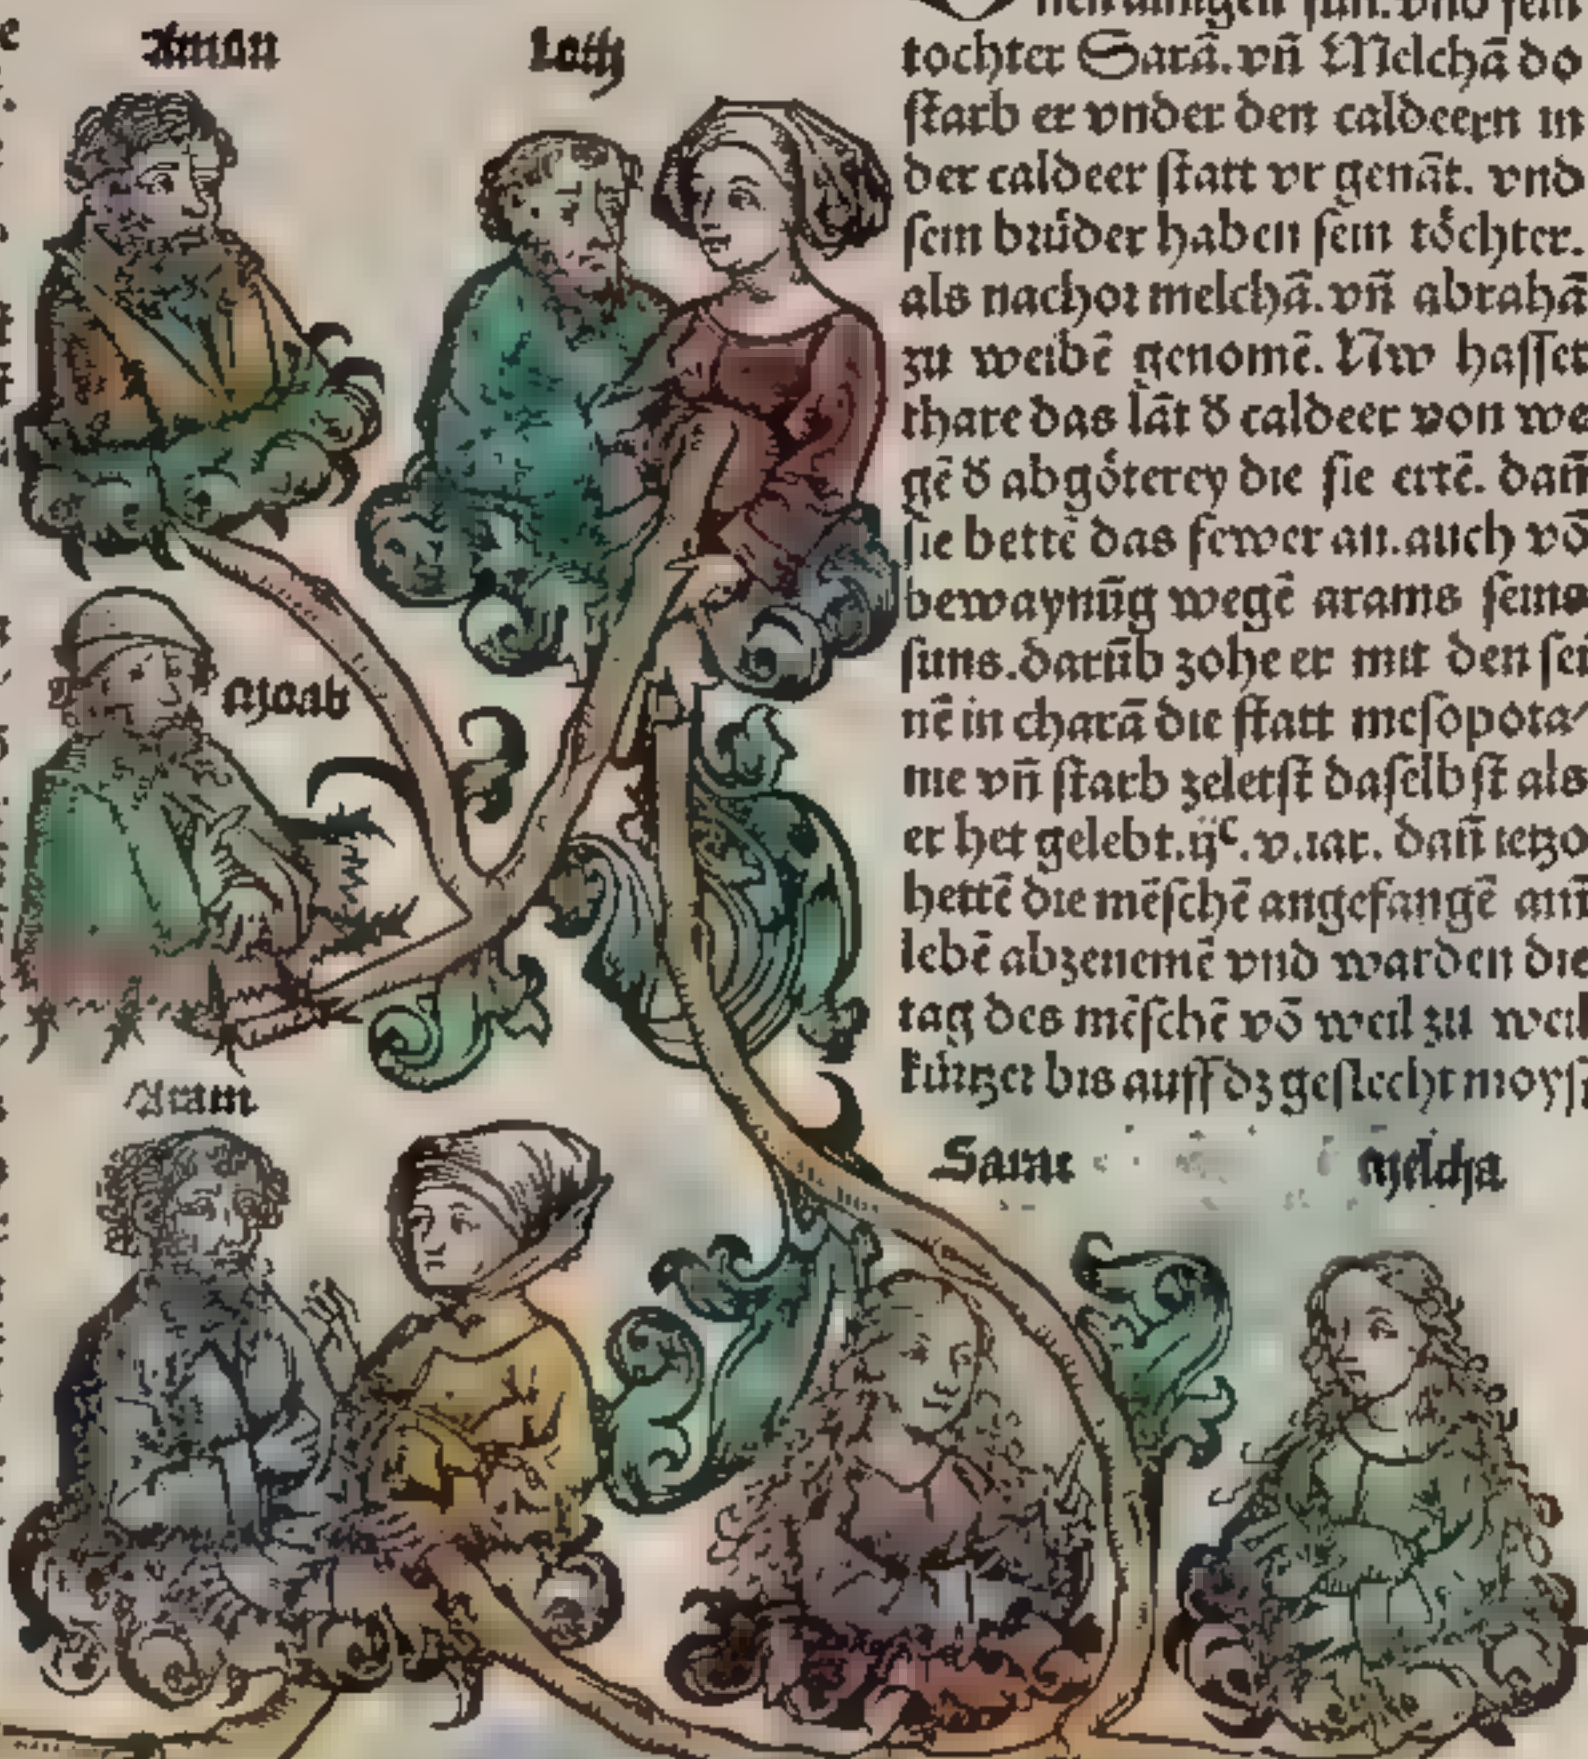 Amon
Loth
nen ainigen sun. vnd sein
tochter Sarā. vn̄ Melchā do
starb er vnder den caldeern in
der caldeer statt vr genāt. vnd
sein brüder haben sein töchter.
als nachor melchā. vn̄ abrahā
zu weibē genomē. Nw hasset
thare das lāt d̄ caldeer von we
gē d̄ abgötterey die sie ertē. dan̄
sie bettē das fewer an. auch vō
bewaynūg wegē arams seins
suns. darūb zohe er mit den sei
nē in charā die statt mesopota⸗
me vn̄ starb zeletst daselbst als
er het gelebt. ijᶜ. v. iar. dan̄ ietzo
hettē die mēschē angefangē am̄
lebē abzenemē vnd warden die
tag des mēschē vō weil zu weil
kürtzer bis auff dz geslecht moysi
Moab
Aram
Sarai
Melcha